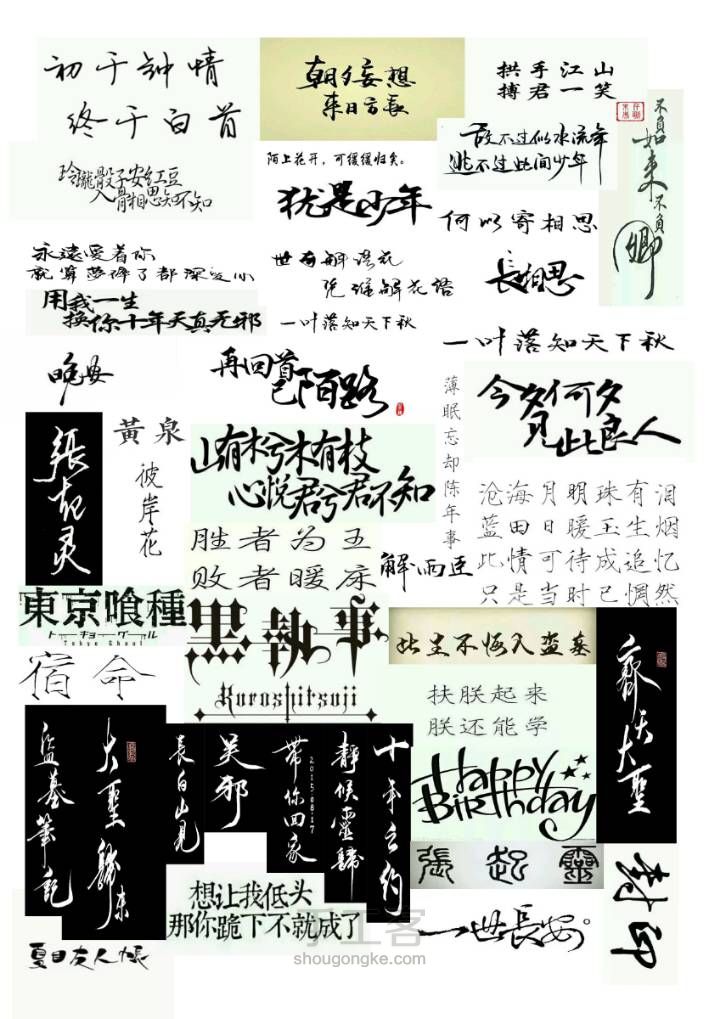 初于钟情
终于白首
朝夕妄想
来日方長
拱手江山
搏君一笑
不負如来不負卿
敌不过似水流年
逃不过此间少年
玲瓏骰子安红豆
入骨相思知不知
陌上花开，可缓缓归矣。
犹是少年
何以寄相思
永遠愛着你
就算夢碎了都深愛你
世有解语花
凭谁解花语
長相思
用我一生
换你十年天真无邪
一叶落知天下秋
一叶落知天下秋
晚安
再回首
已陌路
薄眠忘却陈年事
今夕何夕
見此良人
張起灵
黃泉
彼岸花
山有木兮木有枝
心悦君兮君不知
沧海月明珠有泪
蓝田日暖玉生烟
此情可待成追忆
只是当时已惘然
胜者为王
败者暖床
解雨臣
東京喰種
トーキョーグール
Tokyo Ghoul
黒執事
Kuroshitsuji
此生不悔入盗墓
齊天大聖
宿命
扶朕起来
朕还能学
盗墓筆记
大聖歸来
長白山見
吴邪
帶你回家
2015 08·17
靜候靈歸
十年之约
Happy
Birthday
張起靈
封印
想让我低头
那你跪下不就成了
一世長安。
夏目友人帳
手工客
shougongke.com